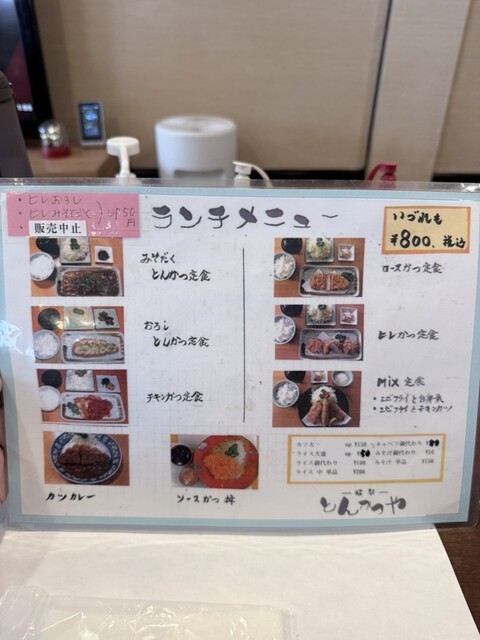 ・ヒレおろし
・ヒレみそだく
UP50円
販売中止
ランチメニュー
いづれも
¥800、税込
みそだく
とんかつ定食
おろし
とんかつ定食
チキンかつ定食
カツカレー
ソースかつ丼
ロースかつ定食
ヒレかつ定食
MIX 定食
・エビフライと白身魚
・エビフライとチキンカツ
カツ大 ¥150 キャベツ御代わり
ライス大盛 みそ汁御代わり ¥50
ライス御代わり ¥100 みそ汁 単品 ¥150
ライス 中 単品 ¥200
とんかつや